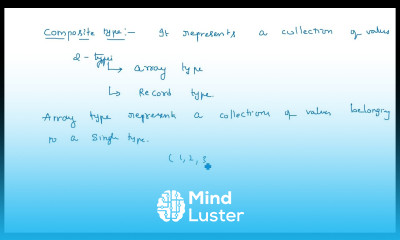 Composite type:- It represents a collection of values
2-types
↳ Array type
↳ Record type
Array type represent a collection of values belonging
to a single type.
( 1, 2, 3
Mind
Luster